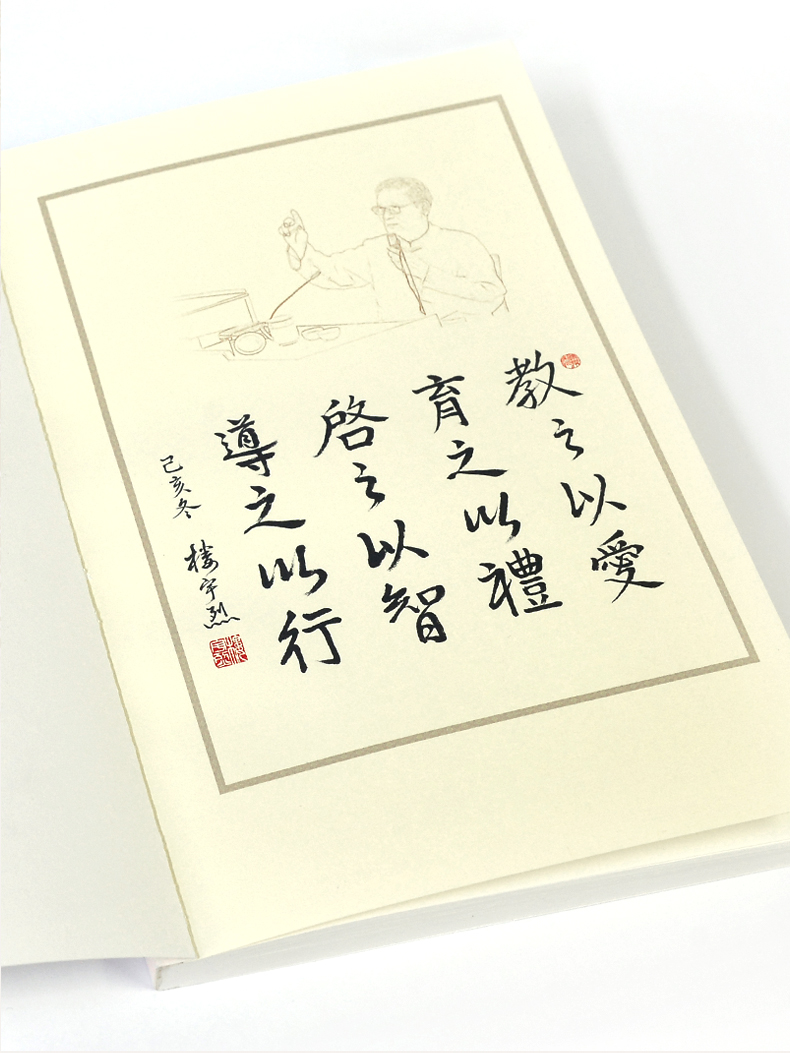 教之以愛
育之以禮
啓之以智
導之以行
己亥冬 楼宇烈